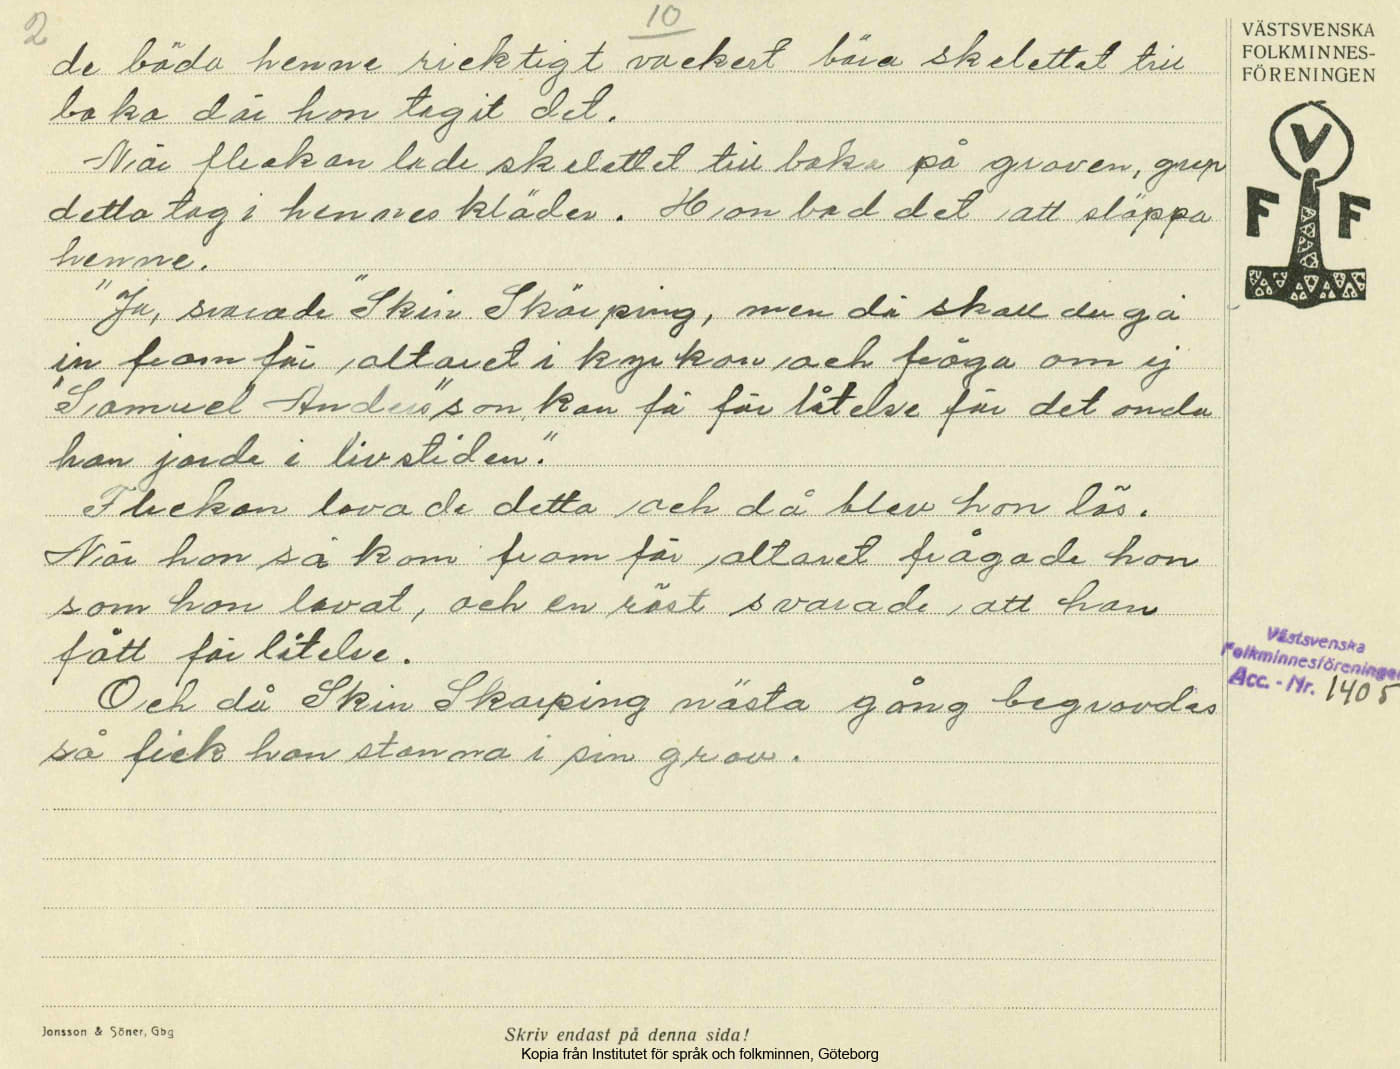 2
10
de båda henne ricktigt vackert bära skelettet till
baka där hon tagit det.
När flickan lade skelettet till baka på graven, grep
detta tag i hennes kläder. Hon bad det att släppa
henne.
"Ja, svarade "Skin Skärping, men då skall du gå
in fram för altaret i kyrkan och fråga om ej
"Samuel Anders"son kan få för låtelse för det onda
han jorde i livstiden."
Flickan lovade detta och då blev hon lös.
När hon så kom fram för altaret frågade hon
som hon lovat, och en röst svarade att han
fått för låtelse.
Och då Skin Skarping nästa gång begravdes
så fick han stanna i sin grav.
VÄSTSVENSKA
FOLKMINNES-
FÖRENINGEN
V
F F
Västsvenska
Folkminnesföreningen
Acc. - Nr. 1405
Jonsson & Söner, Gbg
Skriv endast på denna sida!
Kopia från Institutet för språk och folkminnen, Göteborg